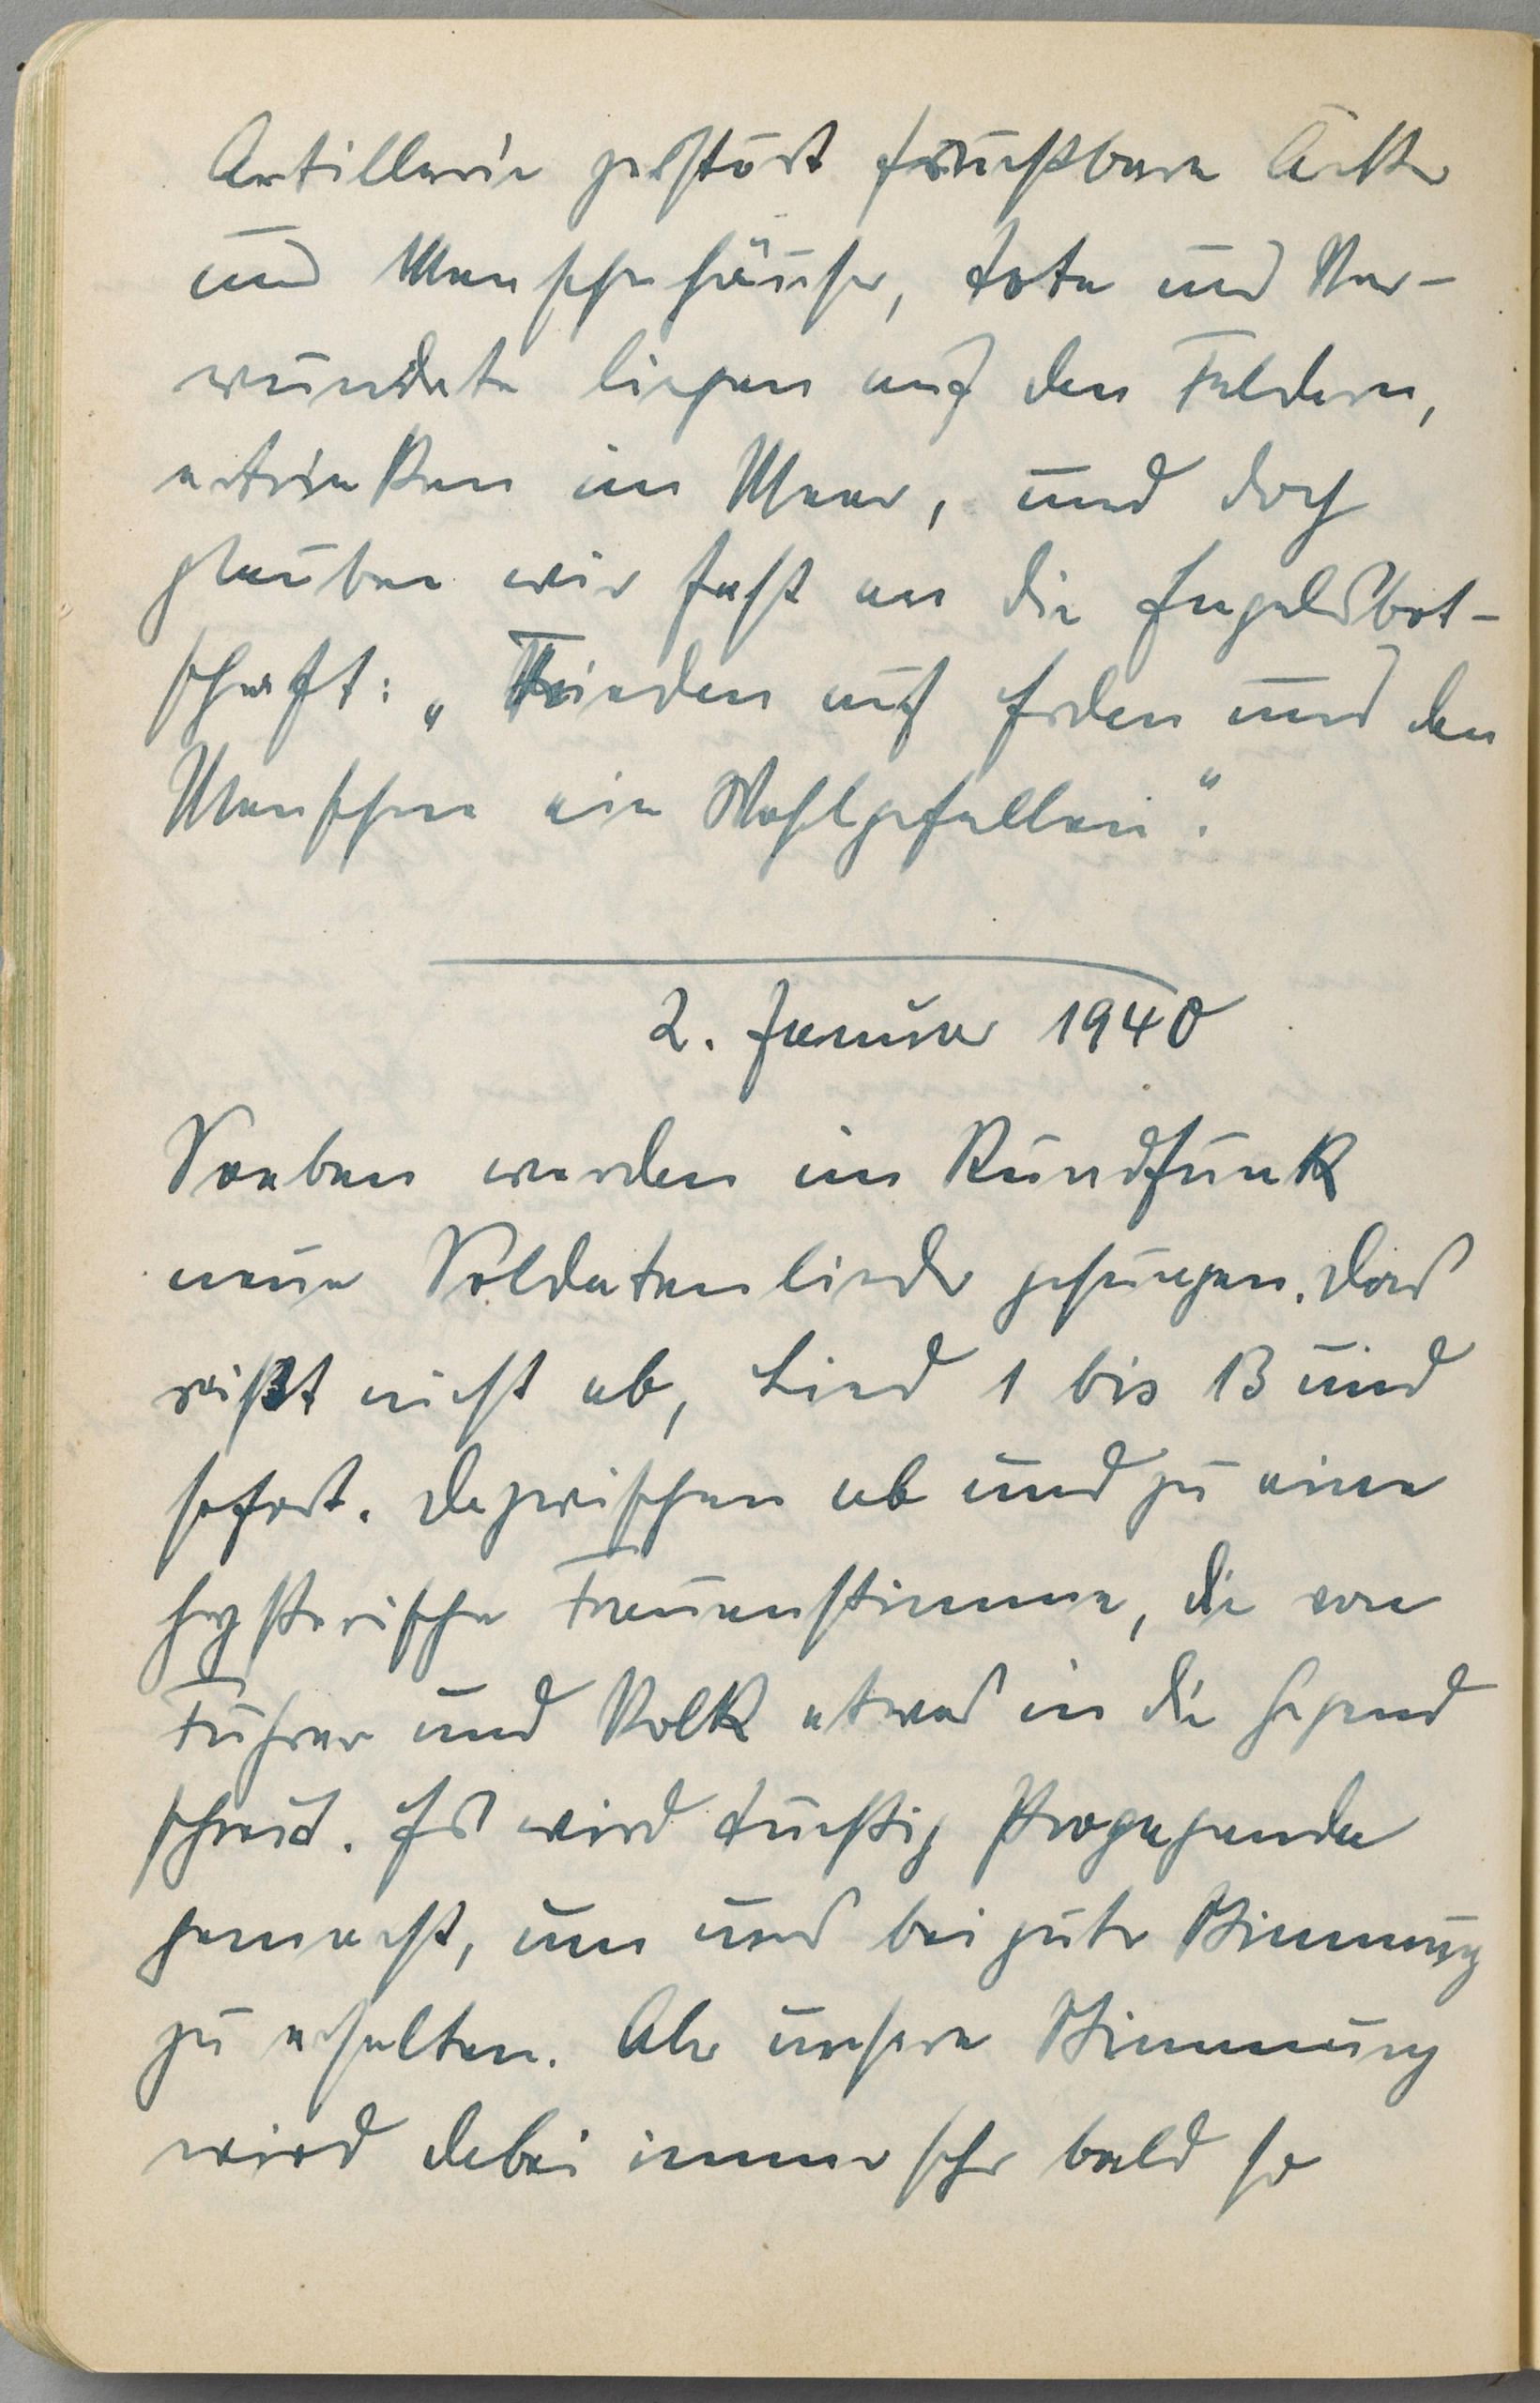 Artillerie zerstört fruchtbare Äcker
und Menschenhäuser, tote und Ver-
wundete liegen auf den Feldern,
ertrinken im Meer, und doch
glauben wir fest an die Engelsbot-
schaft: „Frieden auf Erden und den
Menschen ein Wohlgefallen“.
2. Januar 1940
Soeben werden im Rundfunk
neue Soldatenlieder gesungen. Das
reißt nicht ab, Lied 1 bis 13 und
sofort. Dazwischen ab und zu eine
hysterische Frauenstimme, die von
Führer und Volk etwas in die Gegend
schreit. Es wird tüchtig Propaganda
gemacht, um uns bei guter Stimmung
zu erhalten. Aber unsere Stimmung
wird dabei immer sehr bald so